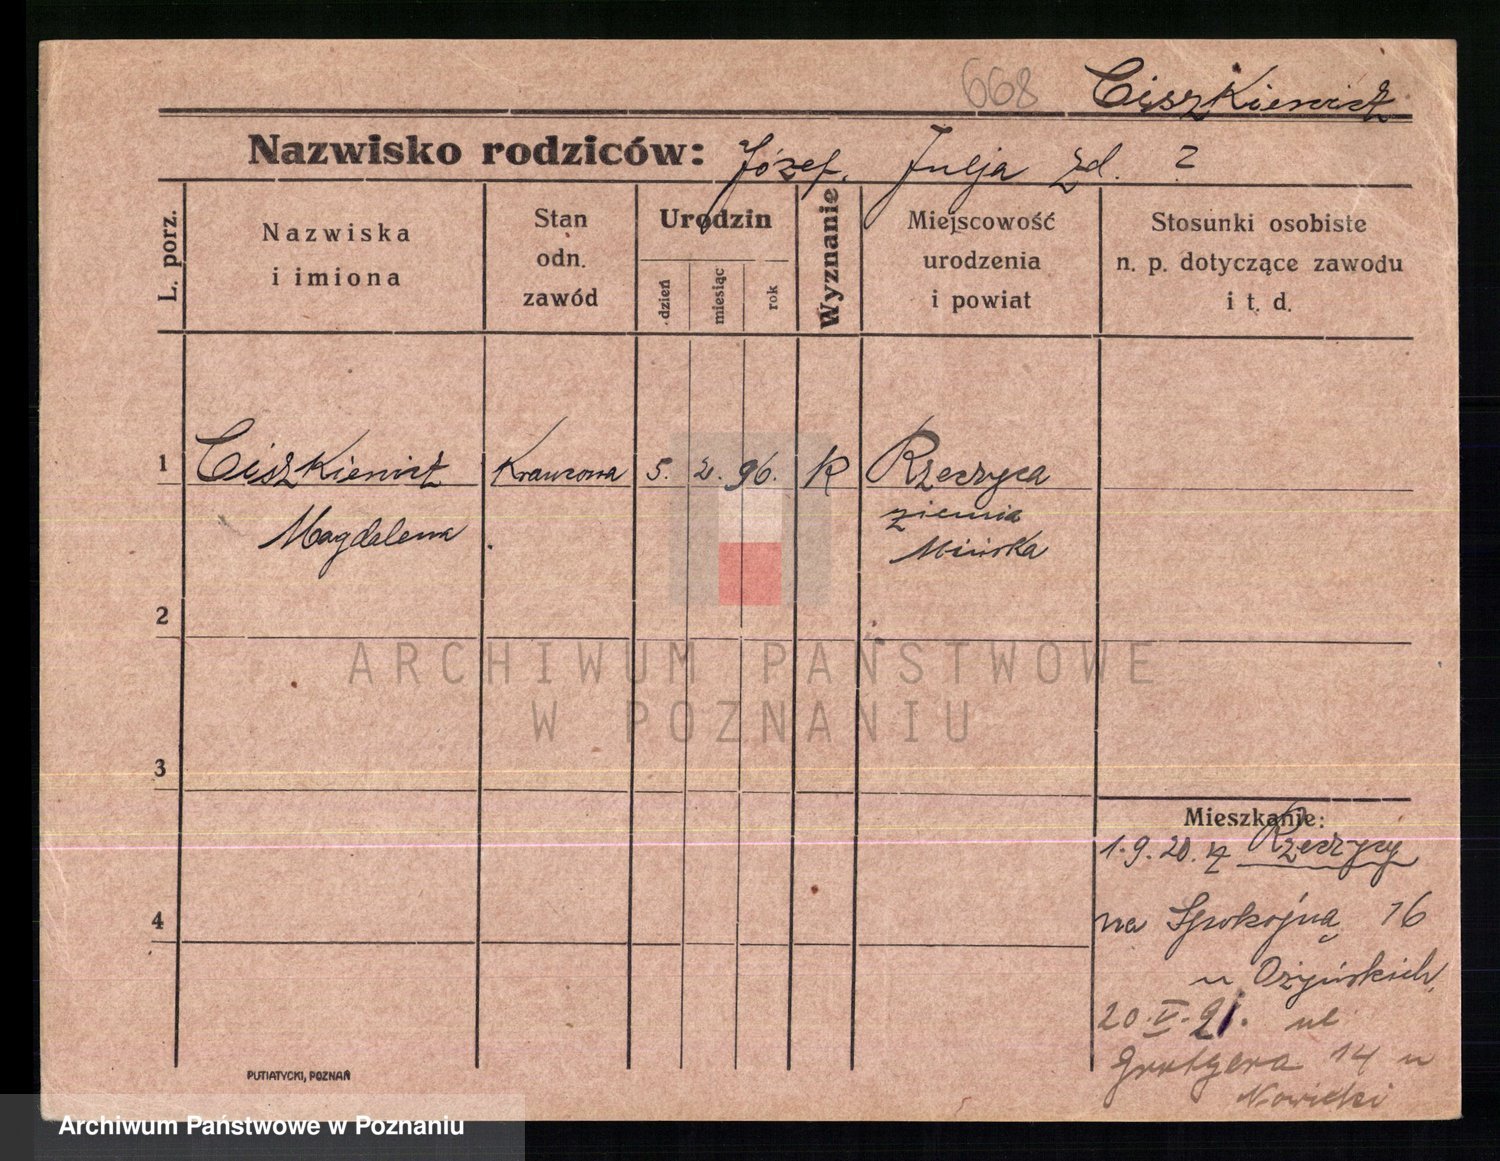 668 Ciszkiewicz
Nazwisko rodziców: Józef, Julja zd. ?
L. porz.
Nazwiska
i imiona
Stan
odn.
zawód
Urodzin
dzień
miesiąc
rok
Wyznanie
Miejscowość
urodzenia
i powiat
Stosunki osobiste
n. p. dotyczące zawodu
i t. d.
1 Ciszkiewicz Krawcowa 5. 2. 96. K Rzeczyca
ziemia
Magdalena
Mińska
2
ARCHIWUM PAŃSTWOWE
W POZNANIU
3
Mieszkanie:
1.9.20. z Rzeczycy
4
na Spokojną 16
u Ożyńskich,
20.V.21. ul
Grottgera 14 u
Nowicki
PUTIATYCKI, POZNAŃ
Archiwum Państwowe w Poznaniu